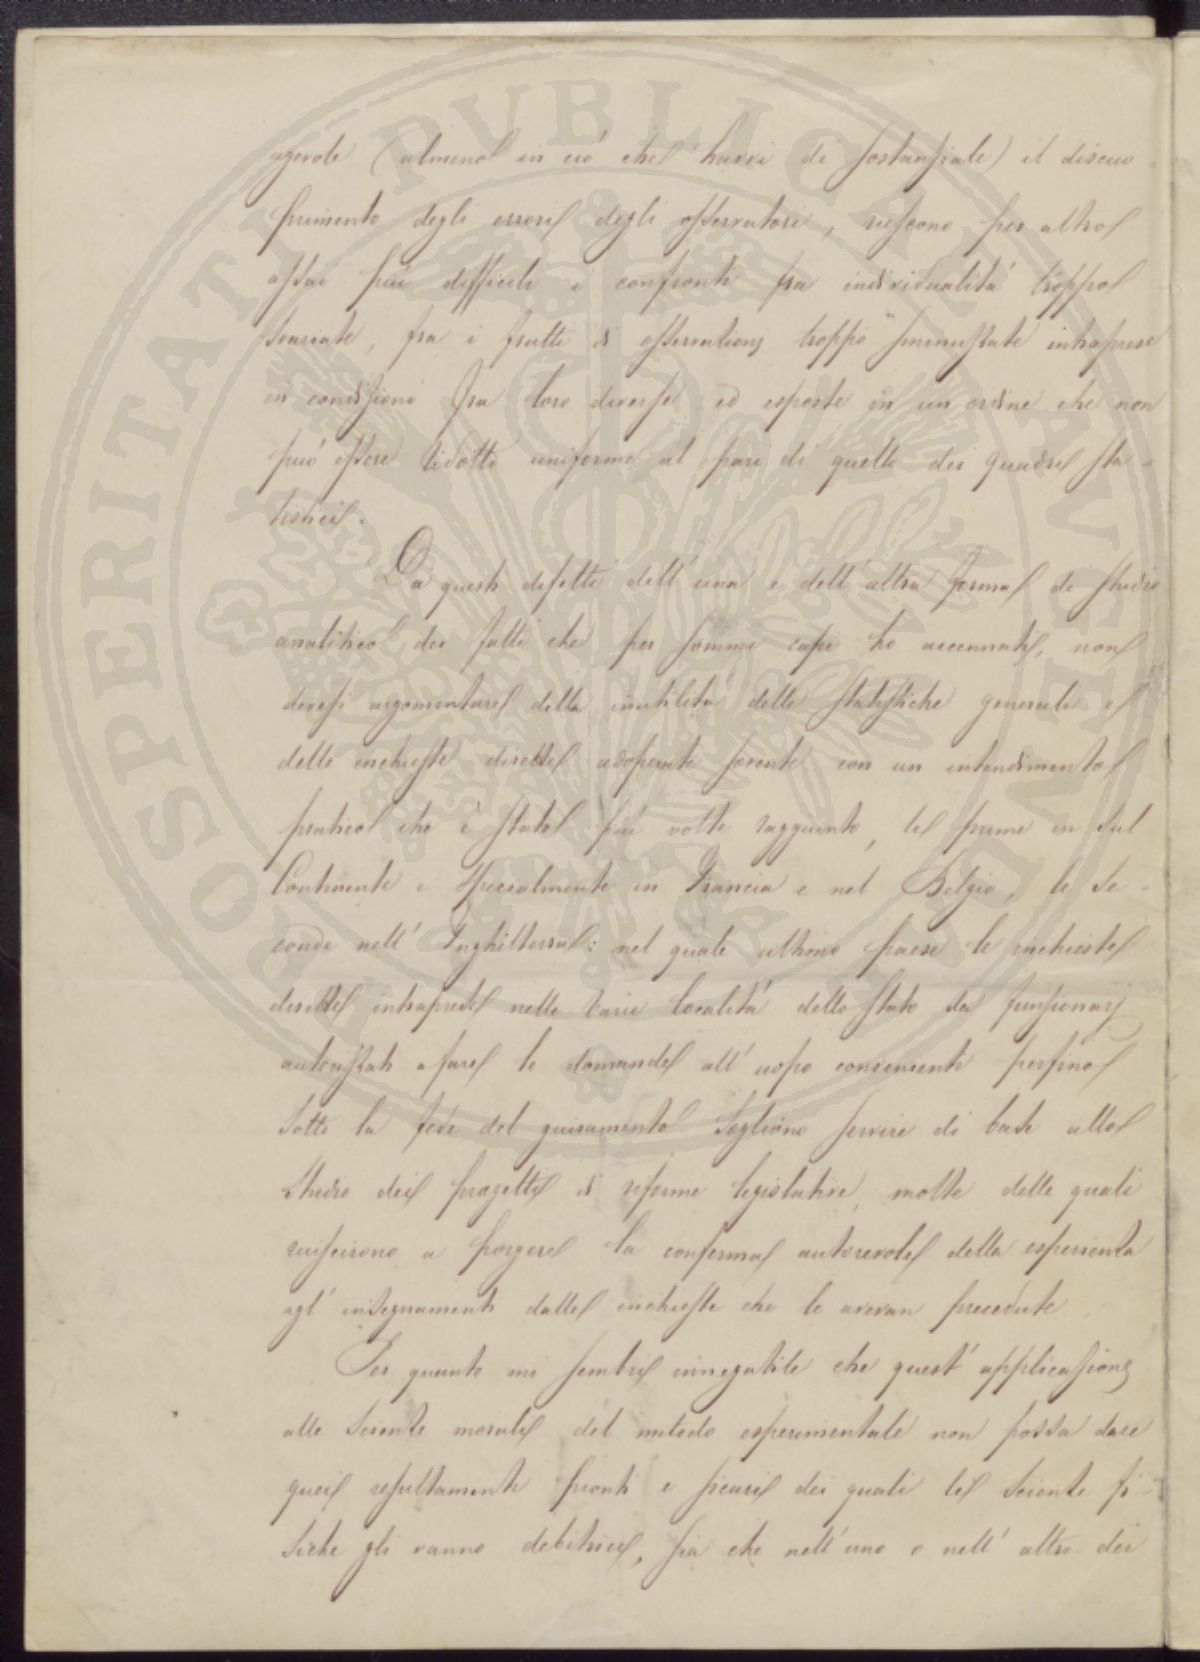 agevole (almeno in ciò che havvi di sostanziale) il discuo
primento degli errori degli osservatori, riescono per altro
assai più difficili i confronti fra individualità troppo
svariate, fra i frutti di osservazioni troppo sminuzzate intraprese
in condizioni fra loro diverse ed esposte in un ordine che non
può essere ridotto uniforme al pari di quello dei quadri sta-
tistici.
Da questi difetti dell'una e dell'altra forma di studio
analitico dei fatti che per sommi capi ho accennati, non
devesi argomentare della inutilità delle statistiche generali e
delle inchieste dirette adoperate sovente con un intendimento
pratico che è stato più volte raggiunto, le prime in sul
Continente e specialmente in Francia e nel Belgio, le se-
conde nell'Inghilterra: nel quale ultimo paese le inchieste
dirette intraprese nelle varie località dello stato da funzionarj
autorizzati a fare le domande all'uopo convenienti persino
sotto la fede del giuramento sogliono servire di base allo
studio dei progetti di riforme legislative, molte delle quali
riuscirono a porgere la conferma autorevole della esperienza
agl'insegnamenti dalle inchieste che le avevan precedute.
Per quanto mi sembri innegabile che quest'applicazione
alle scienze morali del metodo esperimentale non possa dare
quei resultamenti pronti e sicuri dei quali le scienze fi-
siche gli vanno debitrici, sia che nell'uno o nell'altro dei
PROSPERITATI PUBLICAE AUGENDAE